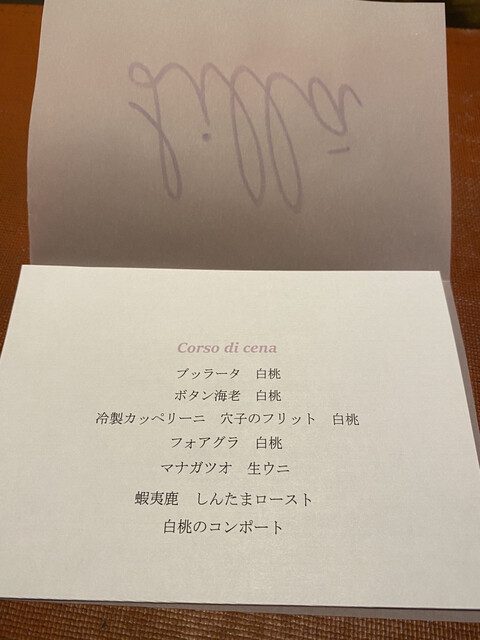 Lillà
Corso di cena
ブッラータ　白桃
ボタン海老　白桃
冷製カッペリーニ　穴子のフリット　白桃
フォアグラ　白桃
マナガツオ　生ウニ
蝦夷鹿　しんたまロースト
白桃のコンポート